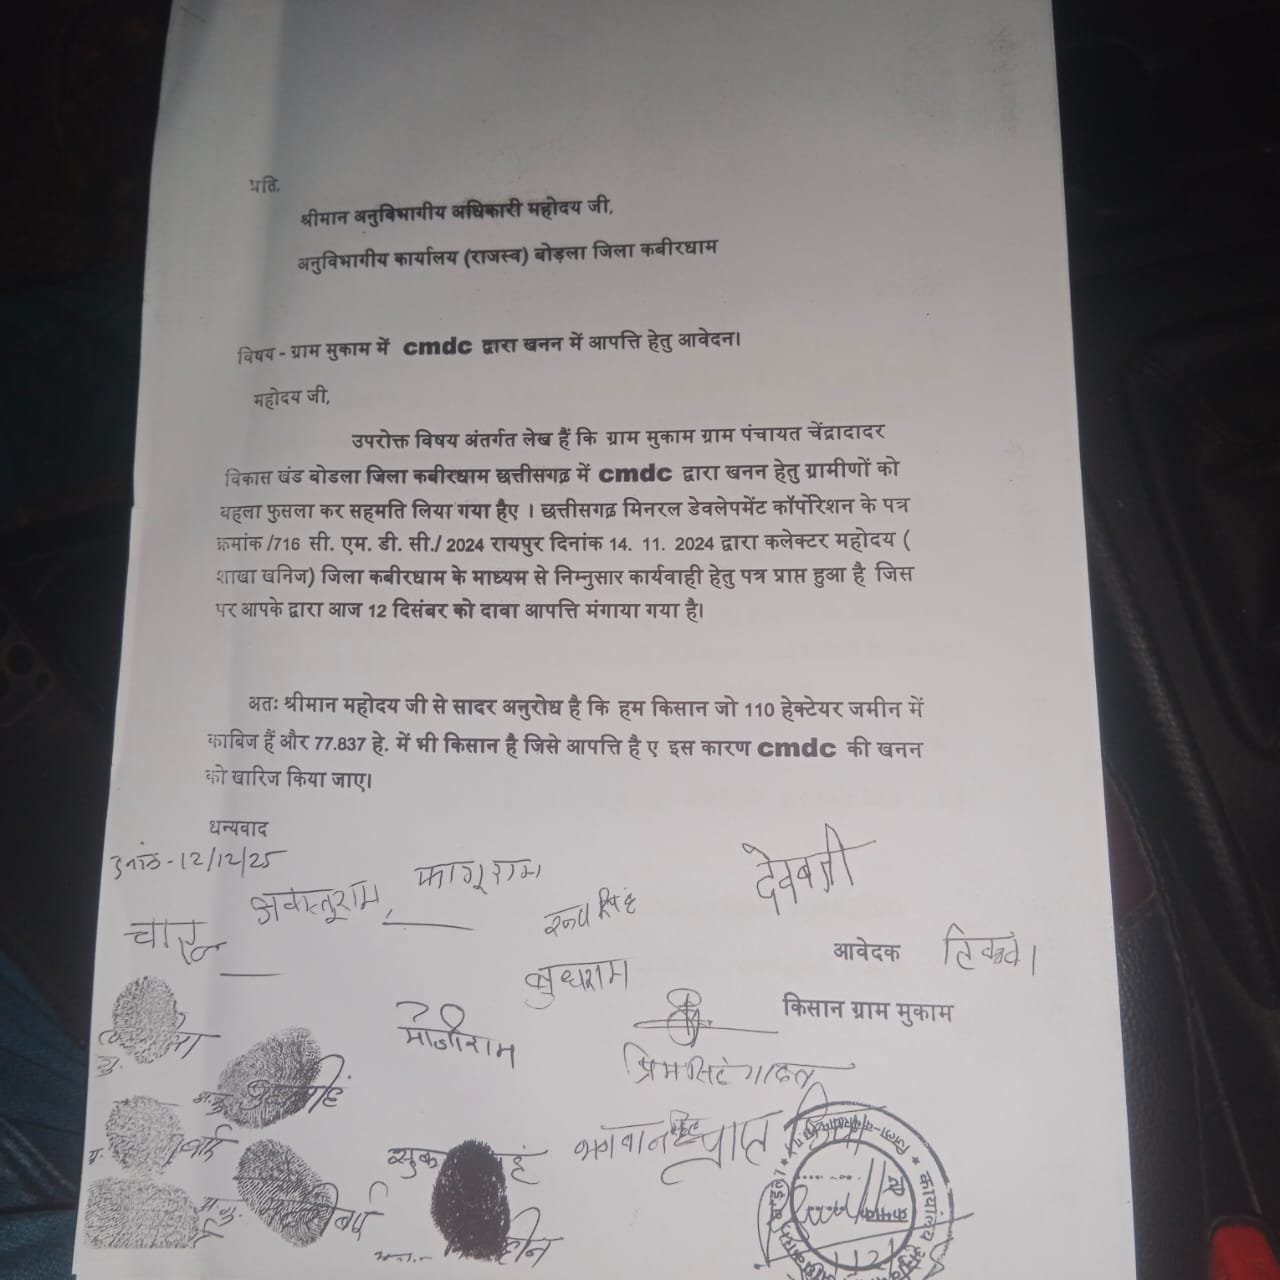 प्रति,
श्रीमान अनुविभागीय अधिकारी महोदय जी,
अनुविभागीय कार्यालय (राजस्व) बोड़ला जिला कबीरधाम
विषय - ग्राम मुकाम में cmdc द्वारा खनन में आपत्ति हेतु आवेदन।
महोदय जी,
उपरोक्त विषय अंतर्गत लेख हैं कि ग्राम मुकाम ग्राम पंचायत चेंद्रादादर
विकास खंड बोडला जिला कबीरधाम छत्तीसगढ़ में cmdc द्वारा खनन हेतु ग्रामीणों को
बहला फुसला कर सहमति लिया गया हैए । छत्तीसगढ़ मिनरल डेवलेपमेंट कॉर्पोरेशन के पत्र
क्रमांक /716 सी. एम. डी. सी./ 2024 रायपुर दिनांक 14. 11. 2024 द्वारा कलेक्टर महोदय (
शाखा खनिज) जिला कबीरधाम के माध्यम से निम्नुसार कार्यवाही हेतु पत्र प्राप्त हुआ है जिस
पर आपके द्वारा आज 12 दिसंबर को दावा आपत्ति मंगाया गया है।
अतः श्रीमान महोदय जी से सादर अनुरोध है कि हम किसान जो 110 हेक्टेयर जमीन में
काबिज हैं और 77.837 हे. में भी किसान है जिसे आपत्ति है ए इस कारण cmdc की खनन
को खारिज किया जाए।
धन्यवाद
12/12/25
फागूराम
देवबती
रूपसिंह
बुधराम
आवेदक
किसान ग्राम मुकाम
मोजीराम
प्रेमसिंह
भगवानसिंह
कार्यालय